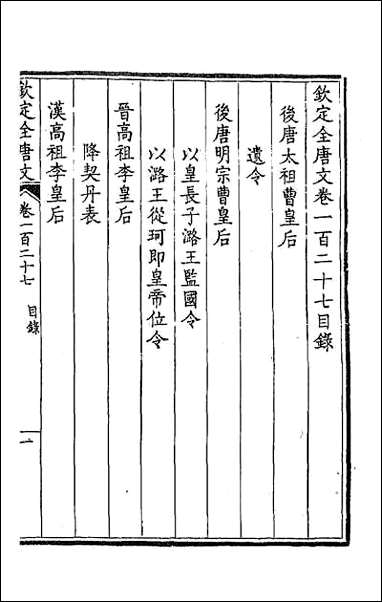 欽定全唐文卷一百二十七目錄
後唐太祖曹皇后
遺令
後唐明宗曹皇后
以皇長子潞王監國令
以潞王從珂即皇帝位令
晉高祖李皇后
降契丹表
漢高祖李皇后
欽定全唐文
卷一百二十七 目錄
一